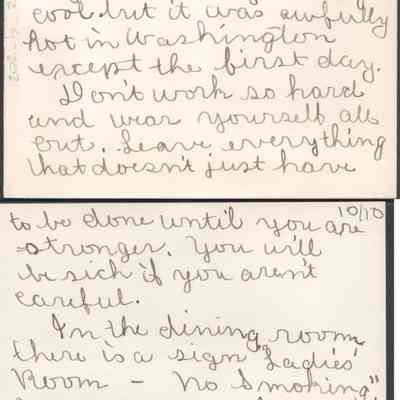 cool but it was awfully
hot in Washington
except the first day.
Don't work so hard
and wear yourself all
out. Leave everything
that doesn't just have
10/10
to be done until you are
stronger. You will
be sick if you aren't
careful.
In the dining room
there is a sign "Ladies'
Room — No Smoking"